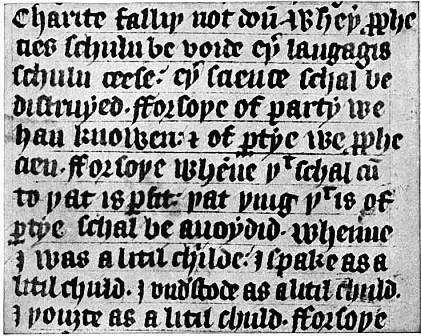 Charite falliþ not doū. wheþ̄ ꝓphe
cies schulū be voide eþ̄ langagis
schulū ceese: eþ̄ science schal be
distruyed. fforsoþe of party we
han knowen: ⁊ of ꝑtye we ꝓphe
cien. fforsoþe whēne þᵗ schal cū
to þat is ꝑfit: þat þing þᵗ is of
ꝑtye schal be auoydid. whenne
I was a litil childe: I spake as a
litil chuld. I vndˀstode as a litil chuld.
I þouȝte as a litil chuld. fforsoþe